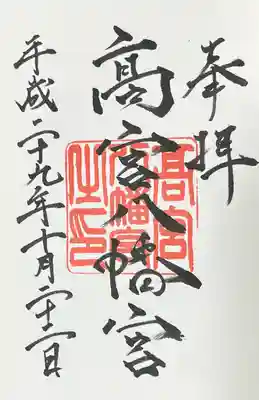 奉拝
髙宮八幡宮
髙宮八幡宮之印
平成二十九年十月二十二日